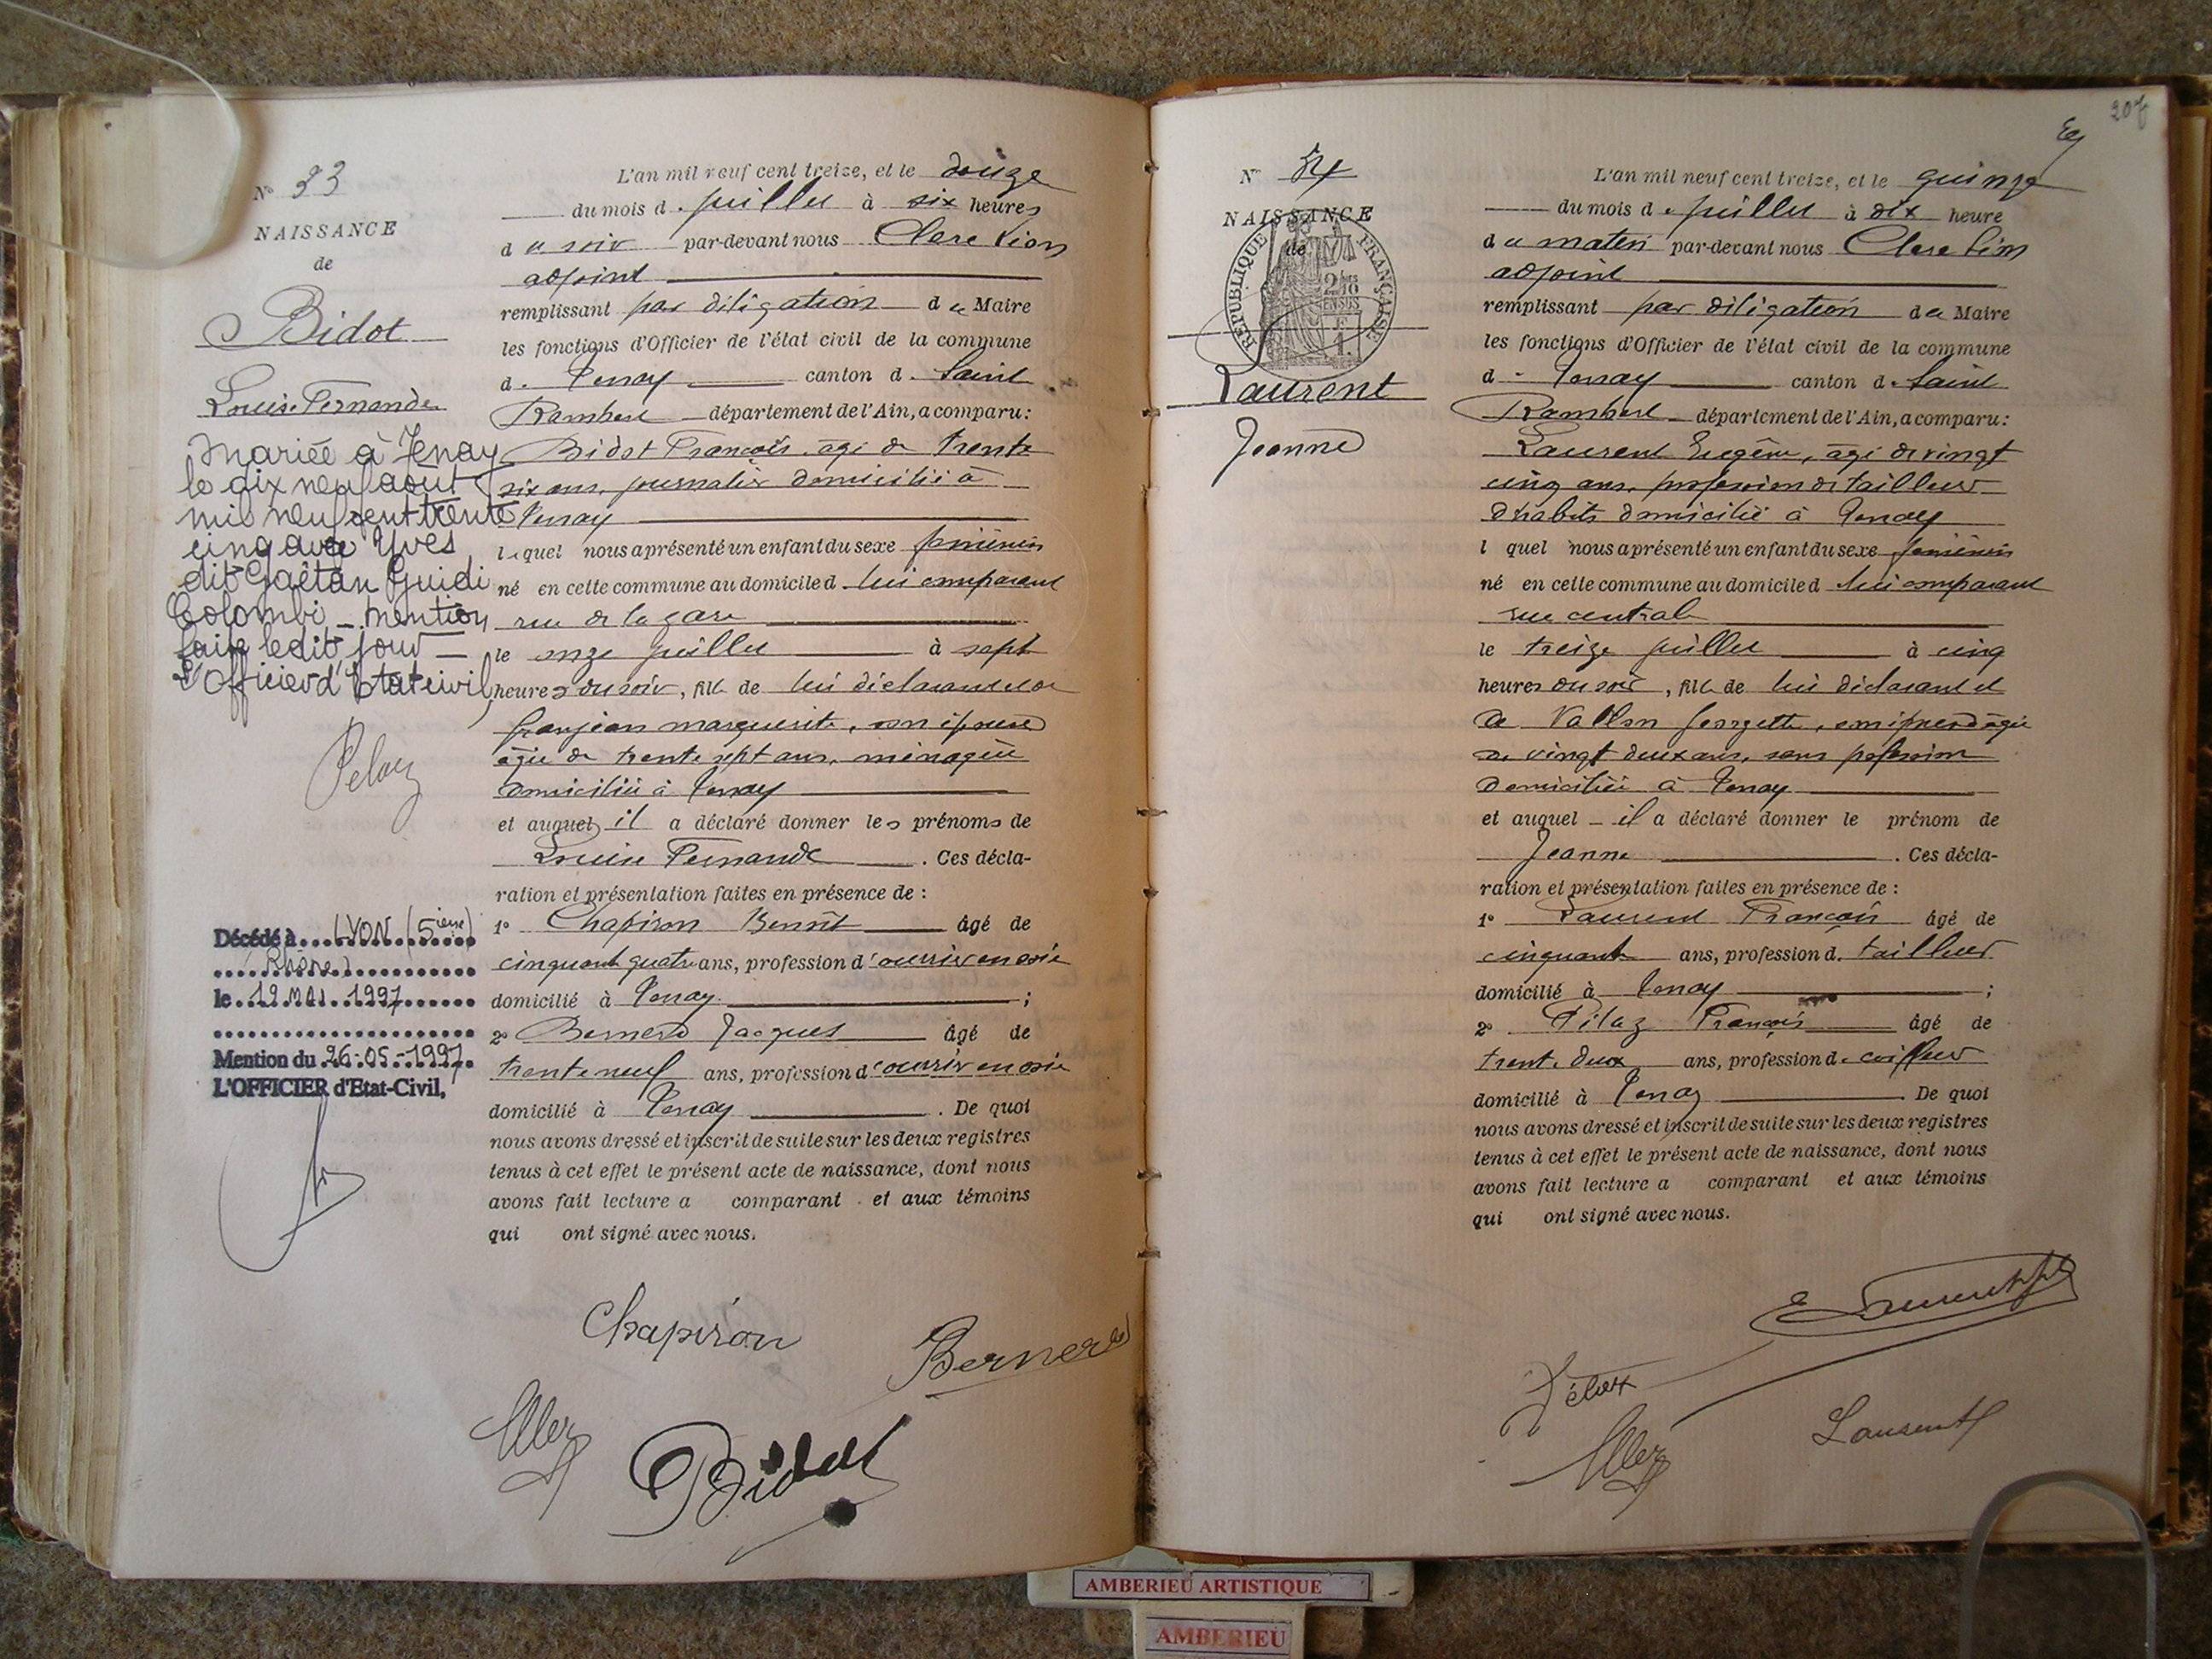 N° 33
NAISSANCE
de
Bidot
Louise Fernande
Mariée à Tenay
le dix neuf aout
mil neuf cent trente
cinq avec Yves
dit Gaëtan Guidi
Colombi _ mention
faite ledit jour _
L'Officier d'Etat civil,
Pelaz
Décédé à LYON (5ième)
Rhône
le 19 MAI 1997
Mention du 26-05-1997.
L'OFFICIER d'Etat-Civil,
L'an mil neuf cent treize, et le douze
du mois de juillet à six heures
du soir par-devant nous Clerc Léon
adjoint
remplissant par déligation du Maire
les fonctions d'Officier de l'état civil de la commune
de Tenay canton de Saint
Rambert département de l'Ain, a comparu:
Bidot François, âgé de trente
six ans, journalier domicilié à
Tenay
lequel nous a présenté un enfant du sexe féminin
né en cette commune au domicile de lui comparant
rue de la gare
le onze juillet à sept
heures du soir, fille de lui déclarant et de
Granjean marguerite, son épouse
âgée de trente sept ans, ménagère
domiciliée à Tenay
et auquel il a déclaré donner les prénoms de
Louise Fernande . Ces décla-
ration et présentation faites en présence de :
1° Chapiron Benoît âgé de
cinquante quatre ans, profession d'ouvrier en soie
domicilié à Tenay ;
2° Bernerd Jacques âgé de
trente neuf ans, profession d'ouvrier en soie
domicilié à Tenay . De quoi
nous avons dressé et inscrit de suite sur les deux registres
tenus à cet effet le présent acte de naissance, dont nous
avons fait lecture a comparant et aux témoins
qui ont signé avec nous.
Chapiron
Bernerd
Bidot
207
N° 54
NAISSANCE
de
RÉPUBLIQUE FRANÇAISE
2/10
EN SUS
Laurent
Jeanne
L'an mil neuf cent treize, et le quinze
du mois de juillet à dix heure
du matin par-devant nous Clerc Léon
adjoint
remplissant par déligation du Maire
les fonctions d'Officier de l'état civil de la commune
de Tenay canton de Saint
Rambert département de l'Ain, a comparu:
Laurent Eugène, âgé de vingt
cinq ans, profession de tailleur
d'habits domicilié à Tenay
l quel nous a présenté un enfant du sexe féminin
né en cette commune au domicile de lui comparant
rue centrale
le treize juillet à cinq
heures du soir, fille de lui déclarant et
de Vallon Georgette, son épouse âgée
de vingt deux ans, sans profession
domiciliée à Tenay
et auquel il a déclaré donner le prénom de
Jeanne . Ces décla-
ration et présentation faites en présence de :
1° Laurent François âgé de
cinquante ans, profession de tailleur
domicilié à Tenay ;
2° Pélaz François âgé de
trente deux ans, profession de coiffeur
domicilié à Tenay . De quoi
nous avons dressé et inscrit de suite sur les deux registres
tenus à cet effet le présent acte de naissance, dont nous
avons fait lecture a comparant et aux témoins
qui ont signé avec nous.
E Laurent
Pélaz
Laurent
AMBERIEU ARTISTIQUE
AMBERIEU